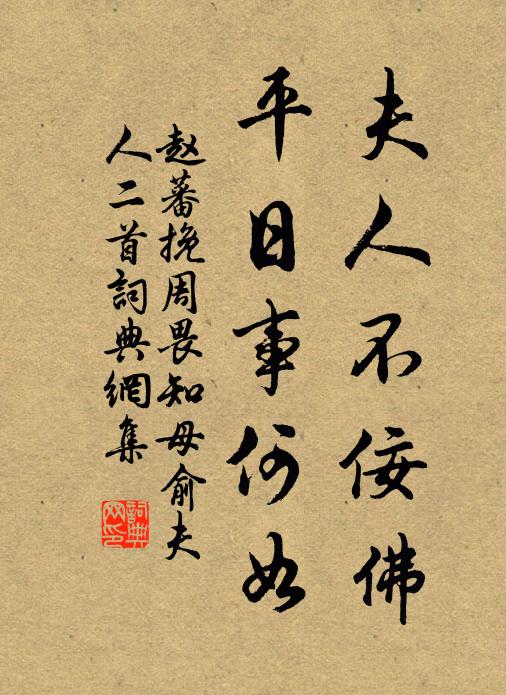 夫人不佞佛
平日事何如
赵蕃挽周畏知母俞夫
人二首詞典網集
詞典
网印